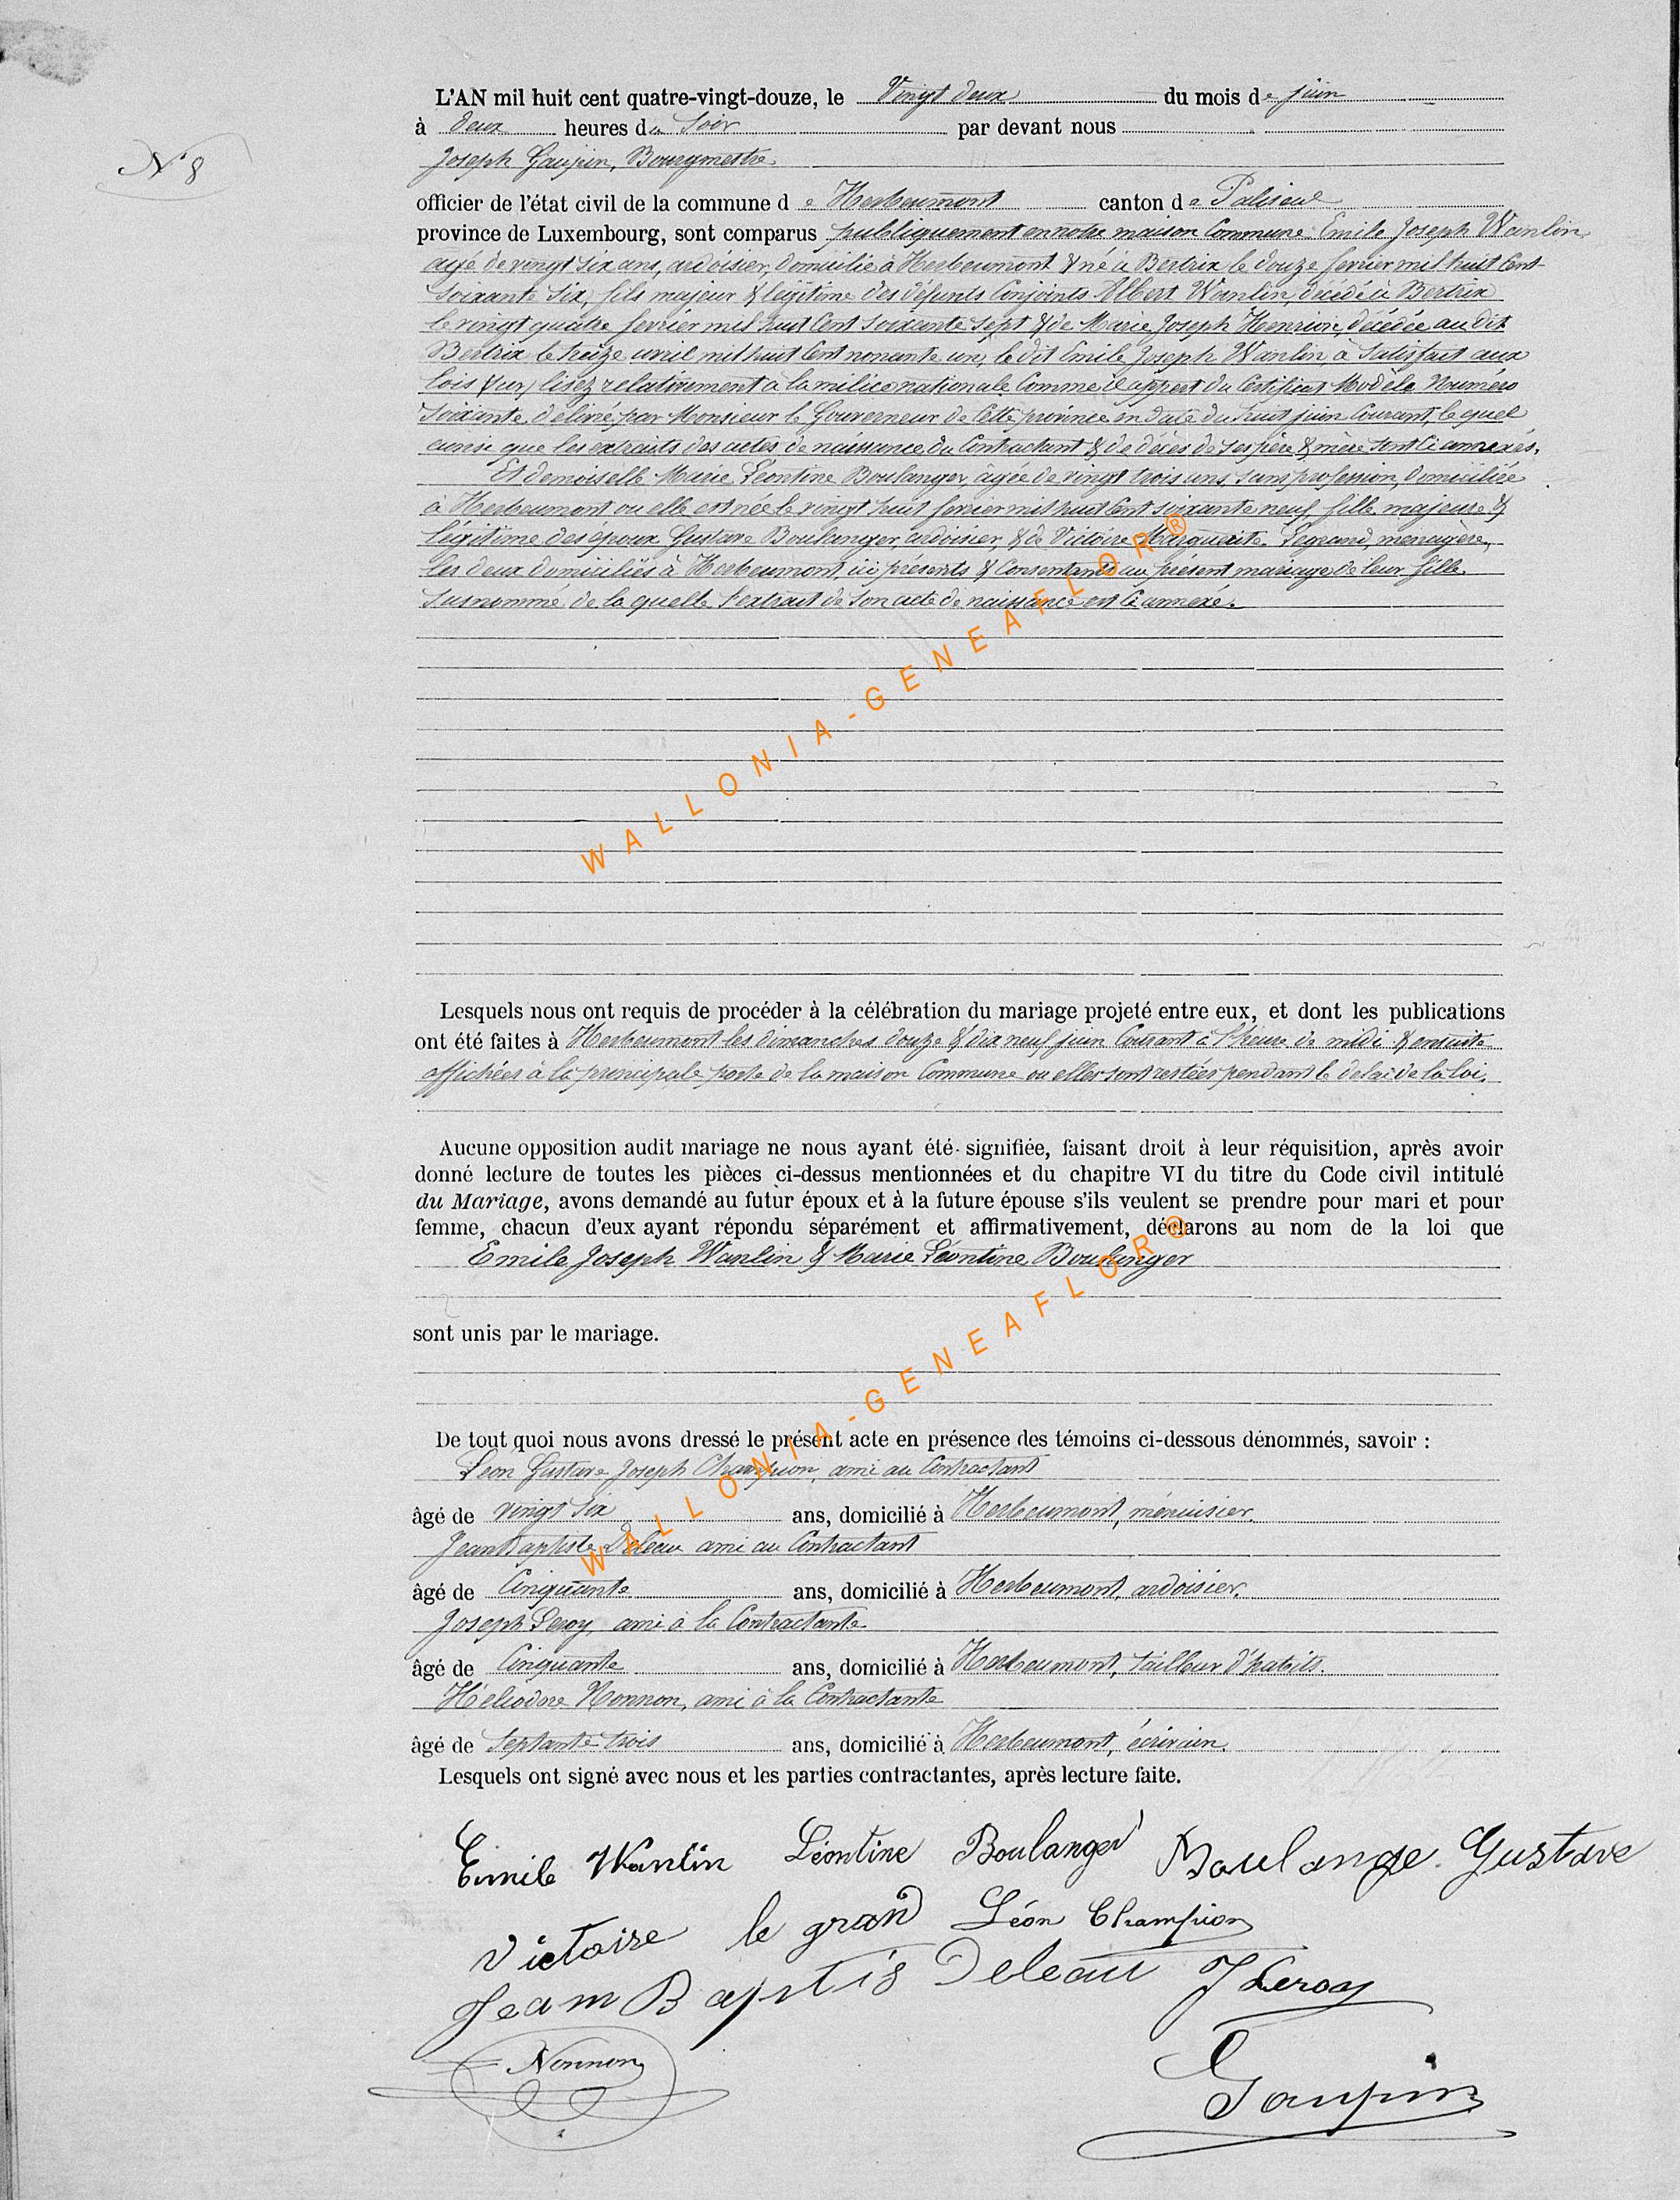 N° 8
L'AN mil huit cent quatre-vingt-douze, le Vingt deux du mois de juin
à deux heures du Soir par devant nous
Joseph Gaupin, Bourgmestre
officier de l'état civil de la commune de Herbeumont canton de Paliseul
province de Luxembourg, sont comparus publiquement en notre maison Commune Emile Joseph Wanlin,
agé de vingt six ans, ardoisier, domicilié à Herbeumont & né à Bertrix le douze fevrier mil huit Cent
soixante six, fils majeur & légitime des défunts Conjoints Albert Wanlin, décédé à Bertrix
le vingt quatre fevrier mil huit Cent soixante sept & de Marie Joseph Henrion, décédée au dit
Bertrix le treize avril mil huit Cent nonante un, le dit Emile Joseph Wanlin, à Satisfait aux
lois (sur) lisez relativement à la milice nationale Comme il appert du Certificat Modèle Numéro
Soixante, délivré par Monsieur le Gouverneur de Cette province en date du huit juin Courant, le quel
ainsi que les extraits des actes de naissance du Contractant & de décès de Ses père & mère sont Ci annexés.
Et demoiselle Marie Léontine Boulanger, âgée de vingt trois ans, sans profession, domiciliée
à Herbeumont ou elle est née le vingt huit fevrier mil huit Cent soixante neuf, fille majeure &
légitime des époux Gustave Boulanger, ardoisier, & de Victoire Marguerite Legrand, menagère,
les deux domiciliés à Herbeumont, ici présents & Consentants au présent mariage de leur fille
susnommé de la quelle l'extrait de Son acte de naissance est Ci annexé.
Lesquels nous ont requis de procéder à la célébration du mariage projeté entre eux, et dont les publications
ont été faites à Herbeumont les dimanches douze & dix neuf juin Courant à l'heure de midi & ensuite
affichées à la principale porte de la maison Commune ou elles sont restées pendant le delai de la loi.
Aucune opposition audit mariage ne nous ayant été signifiée, faisant droit à leur réquisition, après avoir
donné lecture de toutes les pièces ci-dessus mentionnées et du chapitre VI du titre du Code civil intitulé
du Mariage, avons demandé au futur époux et à la future épouse s'ils veulent se prendre pour mari et pour
femme, chacun d'eux ayant répondu séparément et affirmativement, déclarons au nom de la loi que
Emile Joseph Wanlin & Marie Léontine Boulanger
sont unis par le mariage.
De tout quoi nous avons dressé le présent acte en présence des témoins ci-dessous dénommés, savoir :
Léon Gustave Joseph Champion, ami au Contractant
âgé de vingt six ans, domicilié à Herbeumont, ménuisier.
Jean Baptiste Deleau ami au Contractant
âgé de Cinquante ans, domicilié à Herbeumont, ardoisier.
Joseph Leroy, ami à la Contractante
âgé de Cinquante ans, domicilié à Herbeumont, tailleur d'habits.
Héliodore Nonnon, ami à la Contractante
âgé de Septante trois ans, domicilié à Herbeumont, écrivain.
Lesquels ont signé avec nous et les parties contractantes, après lecture faite.
Emile Wanlin Léontine Boulanger Boulange Gustave
Victoire le grand Léon Champion
Jean Baptis Deleau J Leroy
Nonnon
Gaupin
WALLONIA-GENEAFLOR®
WALLONIA-GENEAFLOR®